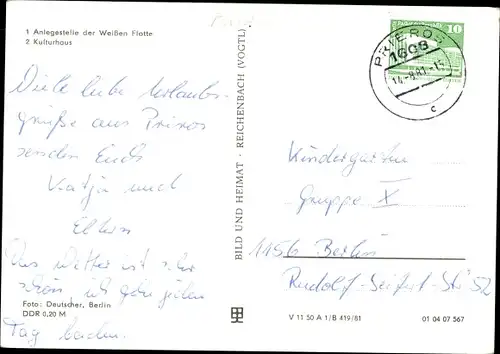 1 Anlegestelle der Weißen Flotte
2 Kulturhaus
Viele liebe Urlaubs-
grüße aus Prieros
senden Euch
Katja und
Eltern
Das Wetter ist sehr
schön ich gehe jeden
Tag baden.
Foto: Deutscher, Berlin
DDR 0,20 M
BILD UND HEIMAT · REICHENBACH (VOGTL)
10
PRIEROS
1608
14.-8.81.-15
c
Kindergarten
Gruppe X
1156 Berlin
Rudolf-Seifert-Str 52
V 11 50 A 1/B 419/81
01 04 07 567